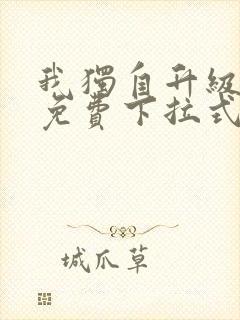 我獨自升級
免費下拉式
城爪草